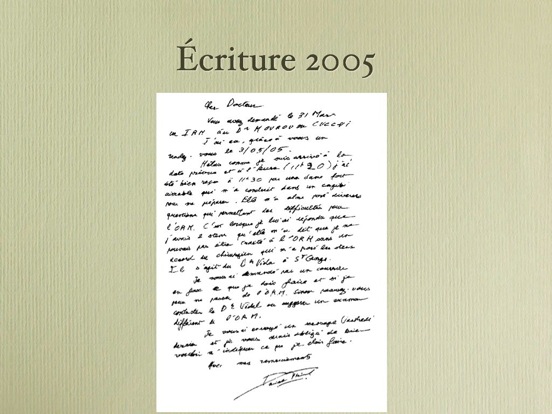 Écriture 2005
Cher Docteur
Vous avez demandé le 31 Mars
un IRM au Dr MOUROU au
J'ai eu, grâce à vous un
rendez-vous le 3/05/05.
Hélas comme je suis arrivé à la
date prévue et à l'heure (11H20) j'ai
été bien reçu à 11H30 par une dame fort
aimable qui m'a conduit dans un
pour me préparer. Elle m'a alors posé diverses
questions qui permettent les difficultés pour
l'IRM. C'est lorsque je lui ai répondu que
j'avais 2 stens qu'elle m'a dit que je ne
pouvais pas être traité à l'IRM sans un
accord du chirurgien qui m'a posé les stens
Il s'agit du Dr Vidal à St
Je vous ai demandé par un courrier
en face ce que je dois faire et si je
peux me passer de l'IRM. Sinon pouvez-vous
contacter le Dr Vidal ou suggérer un examen
différent de l'IRM.
Je vous ai envoyé un message vendredi
dernier et je vous serais obligé de bien
vouloir m'indiquer ce que je dois faire.
Avec mes remerciements